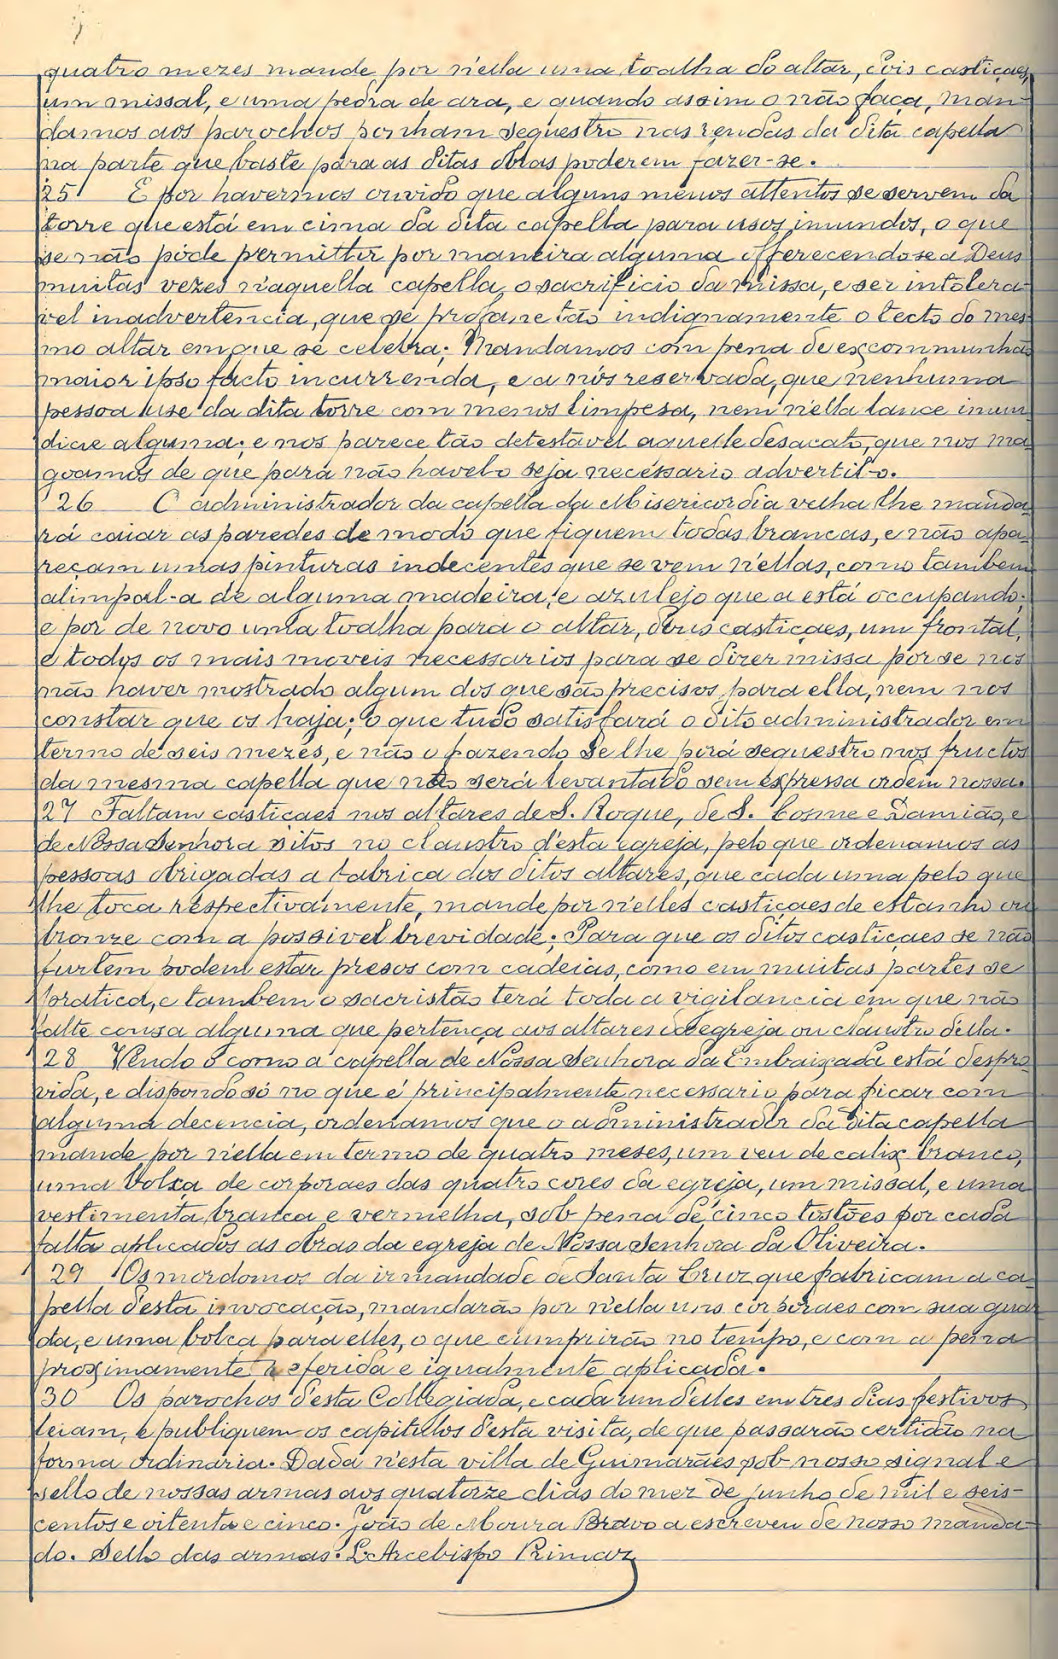 quatro mezes mande por n'ella uma toalha do altar, dois castiçaes,
um missal, e uma pedra de ara, e quando assim o não faça, man-
damos aos parochos ponham sequestro nas rendas da dita capella
na parte que baste para as ditas obras poderem fazer-se.
25 E por havermos ouvido que alguns menos attentos se servem da
torre que está em cima da dita capella para usos inmundos, o que
se não póde permittir por maneira alguma offerecendo-se a Deus
muitas vezes n'aquella capella, o sacrificio da missa, e ser intolera-
vel inadvertencia, que se profane tão indignamente o tecto do mes-
mo altar em que se celebra; Mandamos com pena de excommunhão
maior ipso facto incurrenda, e a nós reservada, que nenhuma
pessoa use da dita torre com menos limpesa, nem n'ella lance inmun-
dicie alguma; e nos parece tão detestável aquelle desacato, que nos ma-
goamos de que para não havel-o seja necessario advertil-o.
26 O administrador da capella da Misericordia velha lhe manda-
rá caiar as paredes de modo que fiquem todas brancas, e não apa-
reçam umas pinturas indecentes que se vem n'ellas, como tambem
alimpal-a de alguma madeira, e azulejo que a está occupando;
e por de novo uma toalha para o altar, dous castiçaes, um frontal,
e todos os mais moveis necessarios para se dizer missa por se nos
não haver mostrado algum dos que são precisos para ella, nem nos
constar que os haja; o que tudo satisfará o dito administrador em
termo de seis mezes, e não o fazendo se lhe porá sequestro nos fructos
da mesma capella que não será levantado sem expressa ordem nossa.
27 Faltam castiçaes nos altares de S. Roque, de S. Cosme e Damião, e
de Nossa Senhora sitos no claustro d'esta egreja, pelo que ordenamos as
pessoas obrigadas a fabrica dos ditos altares, que cada uma pelo que
lhe toca respectivamente, mande por n'elles castiçaes de estanho ou
bronze com a possivel brevidade; Para que os ditos castiçaes se não
furtem podem estar presos com cadeias, como em muitas partes se
pratica, e tambem o sacristão terá toda a vigilancia em que não
falte cousa alguma que pertença aos altares da egreja ou claustro d'ella.
28 Vendo o como a capella de Nossa Senhora da Embaixada está despro-
vida, e dispondo só no que é principalmente necessario para ficar com
alguma decencia, ordenamos que o administrador da dita capella
mande por n'ella em termo de quatro meses, um veu de calix branco,
uma bolça de corporaes das quatro cores da egreja, um missal, e uma
vestimenta branca e vermelha, sob pena de cinco tostões por cada
falta aplicados as obras da egreja de Nossa Senhora da Oliveira.
29 Os mordomos da irmandade de Santa Cruz que fabricam a ca-
pella d'esta invocação, mandarão por n'ella uns corporaes com sua guar-
da, e uma bolça para elles, o que cumprirão no tempo, e com a pena
proximamente referida e igualmente aplicada.
30 Os parochos d'esta Collegiada, e cada um d'elles em tres dias festivos
leiam, e publiquem os capitulos d'esta visita, de que passarão certidão na
forma ordinaria. Dada n'esta villa de Guimarães sob nosso signal e
sello de nossas armas aos quatorze dias do mez de junho de mil e seis-
centos e oitenta e cinco. João de Moura Bravo a escreveu de nosso manda-
do. Sello das armas. L. Arcebispo Primaz